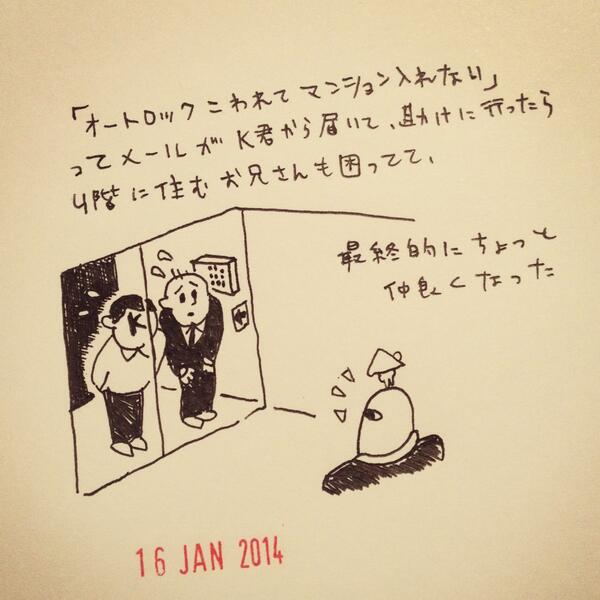 「オートロックこわれてマンション入れない」
ってメールがK君から届いて、助けに行ったら
4階に住むお兄さんも困ってて、
最終的にちょっと
仲良くなった
K
16 JAN 2014